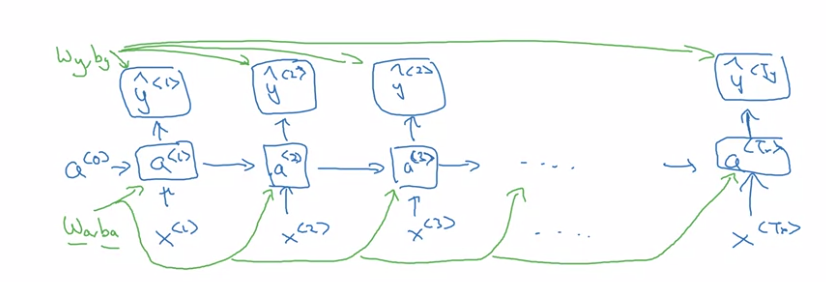 Wy,by
ŷ<1> ŷ<2> ŷ<3> ŷ<Ty>
a<0> a<1> a<2> a<3> .... a<Tx>
Wa,ba
x<1> x<2> x<3> .... x<Tx>